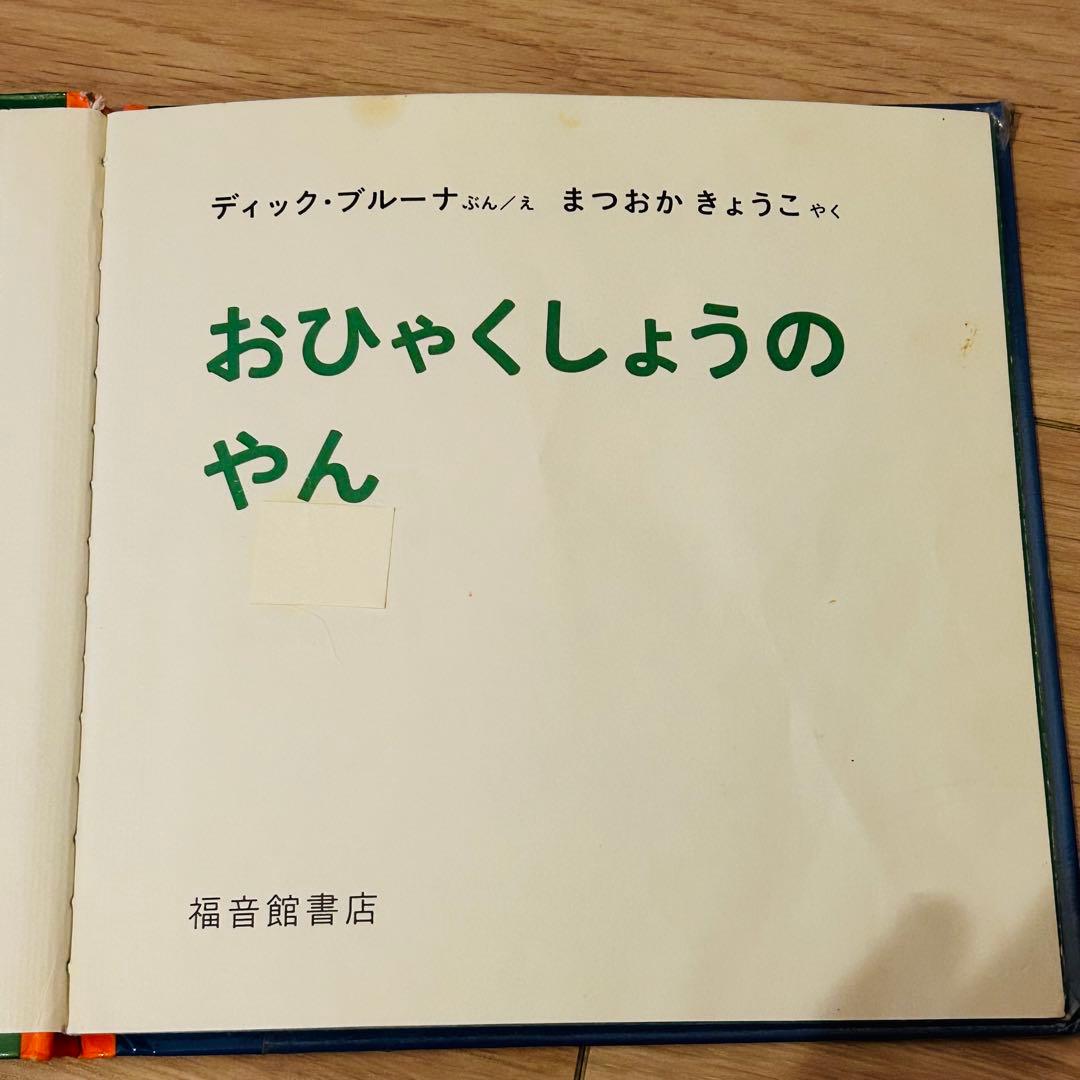 ディック・ブルーナ ぶん／え　まつおか きょうこ やく
おひゃくしょうの
やん
福音館書店